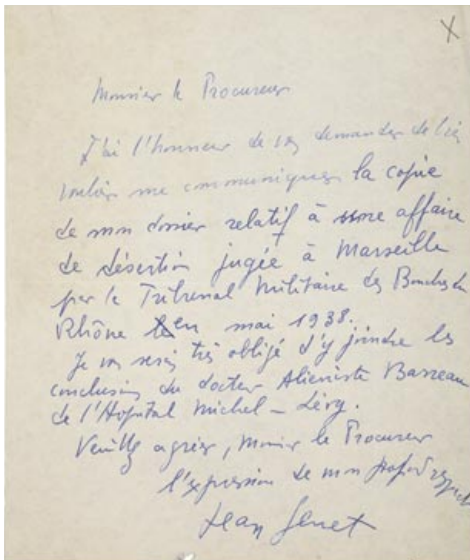 X
Monsieur le Procureur
J'ai l'honneur de vous demander de bien
vouloir me communiquer la copie
de mon dossier relatif à une affaire
de désertion jugée à Marseille
par le Tribunal Militaire des Bouches du
Rhône en mai 1938.
Je vous serais très obligé d'y joindre les
conclusions du docteur Alieniste Barreau
de l'Hopital Michel - Lévy.
Veuillez agréer, Monsieur le Procureur
l'expression de mon profond respect
Jean Genet